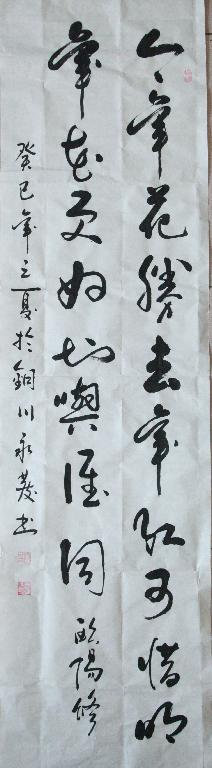 今年花勝去年紅可惜明
年花更好知與誰同 歐陽修
癸巳年之夏於銅川永發書